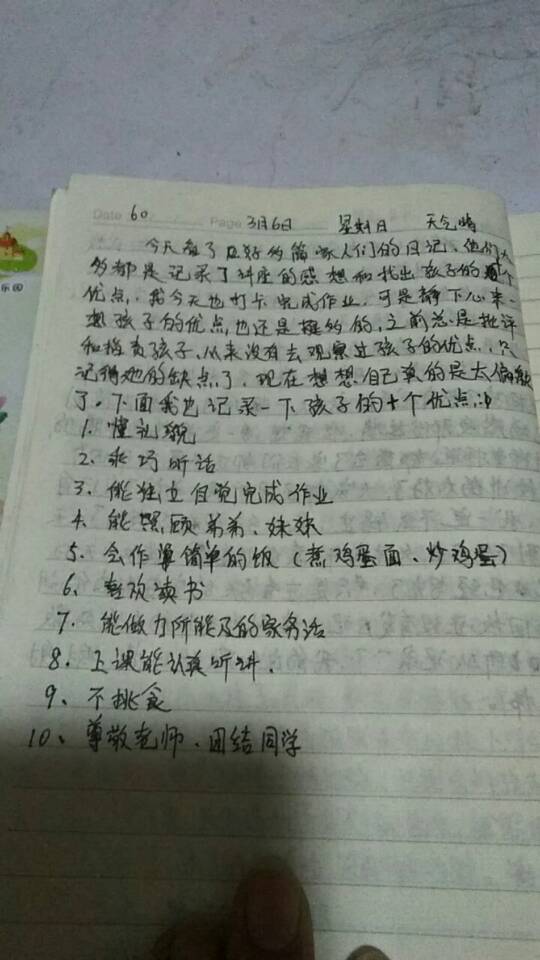 Date 60 Page 3月6日 星期日 天气晴
今天看了良好多篇家人们的日记、他们大
多都是记录了讲座的感想和找出孩子的十个
优点,我今天也打卡完成作业,可是静下心来一
想孩子的优点,也还是挺多的,之前总是批评
和指责孩子,从来没有去观察过孩子的优点,只
记得她的缺点了,现在想想自己真的是太偏激
了。下面我也记录一下孩子的十个优点:
1、懂礼貌
2、乖巧听话
3、能独立自觉完成作业
4、能照顾弟弟、妹妹
5、会作简单的饭(煮鸡蛋面、炒鸡蛋)
6、喜欢读书
7、能做力所能及的家务活
8、上课能认真听讲.
9、不挑食
10、尊敬老师、团结同学
乐园